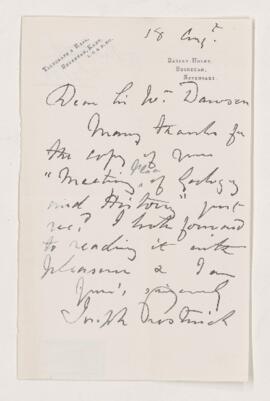 18 Augt.
TELEGRAPH & RAIL,
SHOREHAM, KENT,
L.C.& D. RY.
DARENT-HULME,
SHOREHAM,
SEVENOAKS.
Dear Sir Wm. Dawson
Many thanks for
the copy of your
"Meeting Place of Geology
and History" just
recd. I look forward
to reading it with
pleasure & I am
Your's sincerely
Joseph Prestwich